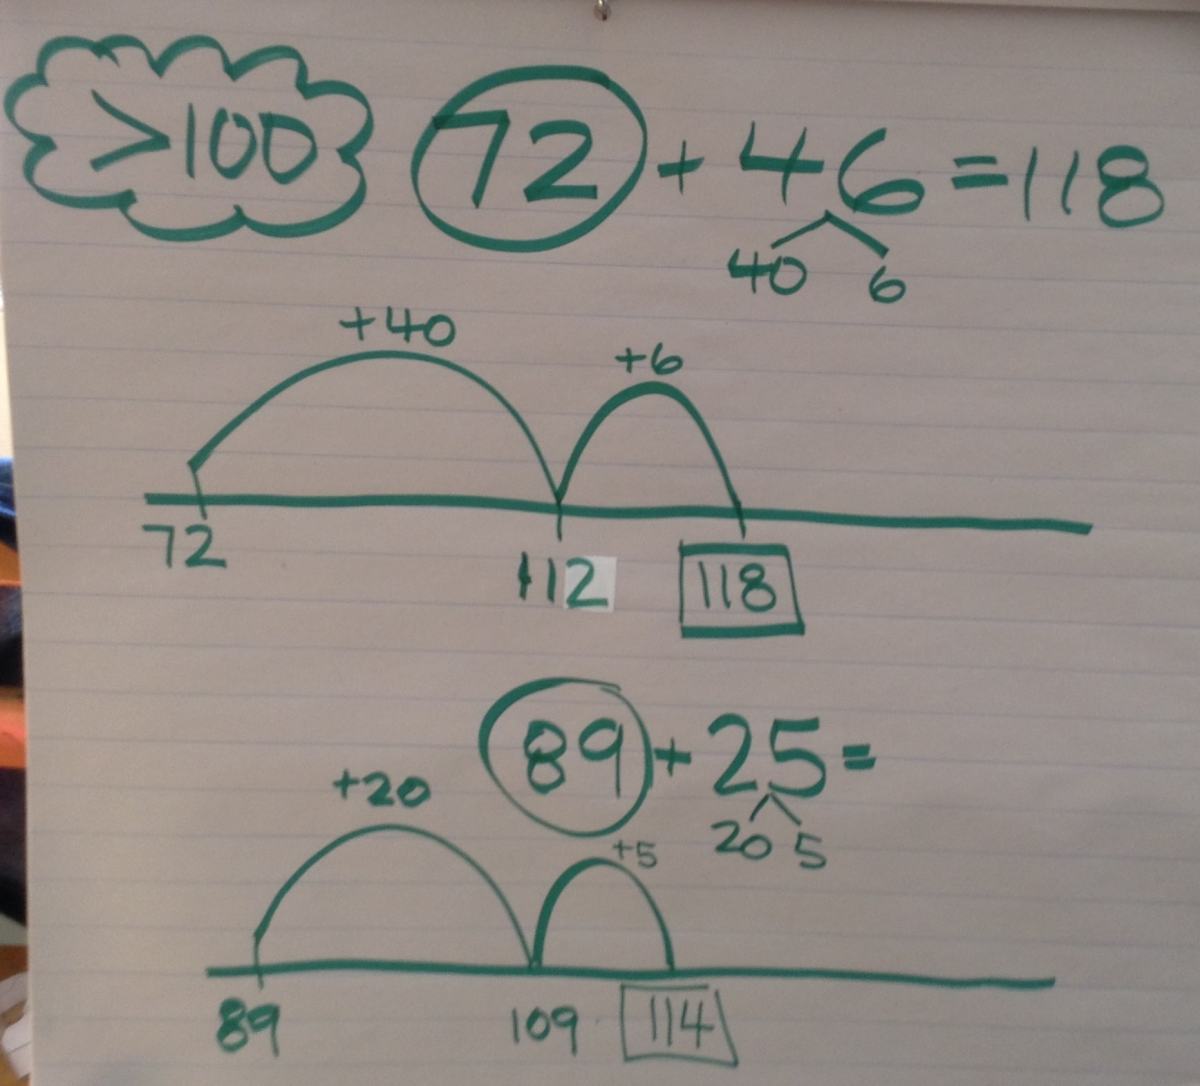 >100 72 + 46 = 118
40 6
+40 +6
72 112 118
89 + 25 =
+20 20 5
+5
89 109 114